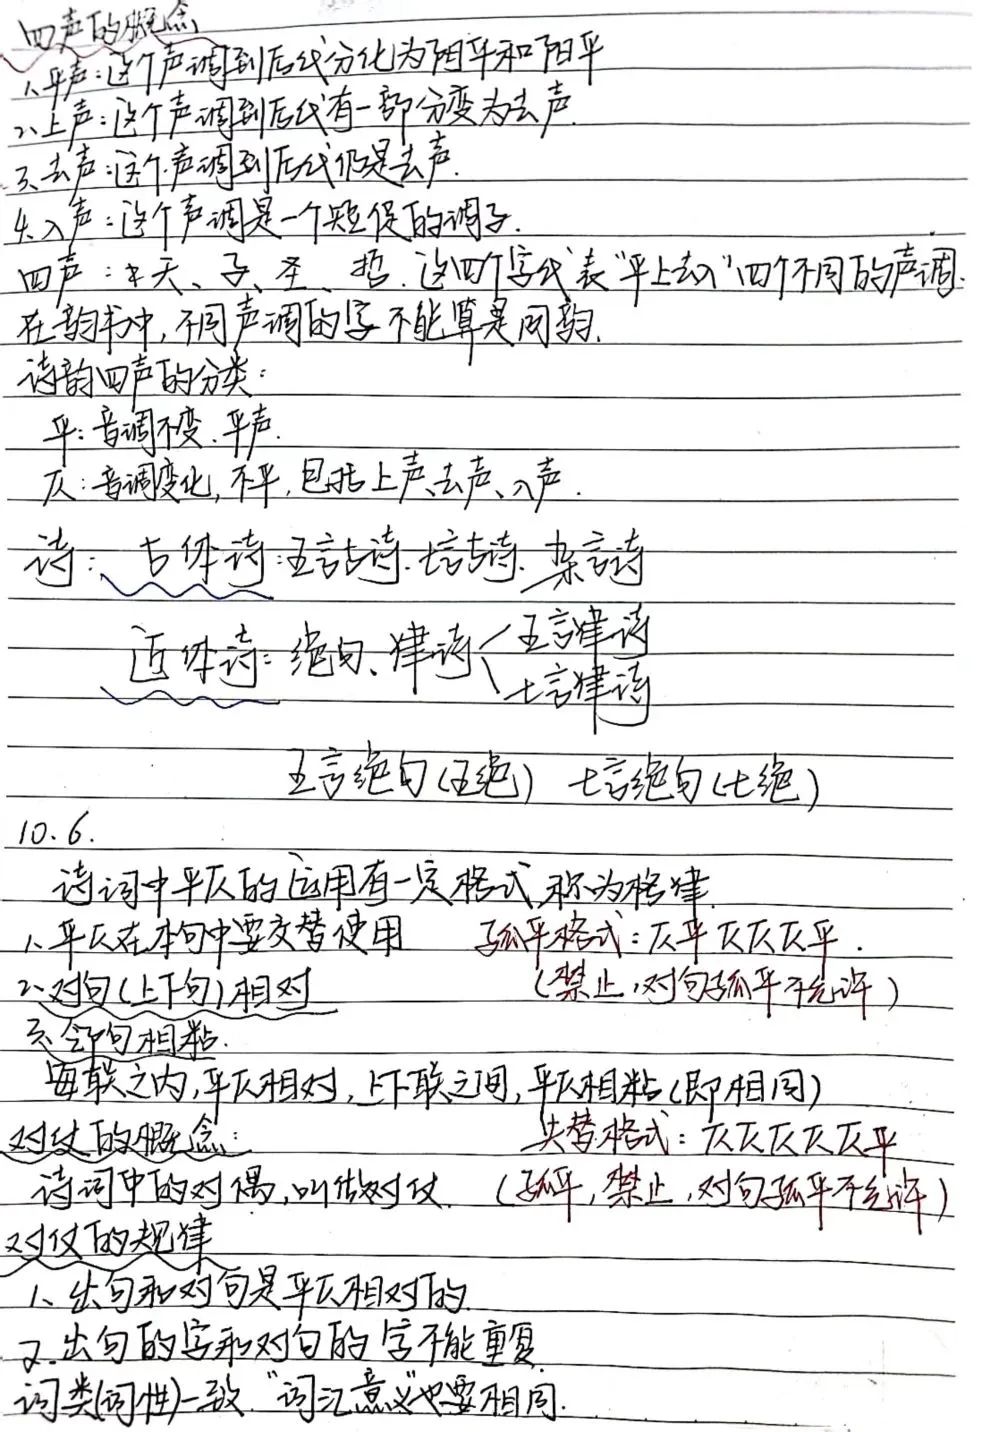 四声的概念
1、平声:这个声调到后代分化为阴平和阳平
2、上声:这个声调到后代有一部分变为去声.
3、去声:这个声调到后代仍是去声.
4、入声:这个声调是一个短促的调子.
四声:天、子、圣、哲.这四个字代表"平上去入"四个不同的声调.
在韵书中,不同声调的字不能算是同韵.
诗韵四声的分类:
平:音调不变.平声.
仄:音调变化,不平,包括上声、去声、入声.
诗: 古体诗:五言古诗.七言古诗.杂言诗
近体诗:绝句、律诗 五言律诗
七言律诗
五言绝句(五绝) 七言绝句(七绝)
10.6.
诗词中平仄的运用有一定格式,称为格律.
1、平仄在本句中要交替使用 孤平格式:仄平仄仄仄平.
2、对句(上下句)相对 (禁止,对句孤平不允许)
3、邻句相粘.
每联之内,平仄相对,上下联之间,平仄相粘(即相同)
对仗的概念: 失替格式:仄仄仄仄仄平
诗词中的对偶,叫做对仗. (孤平,禁止,对句孤平不允许)
对仗的规律
1、出句和对句是平仄相对的.
2.出句的字和对句的字不能重复
词类(词性)一致."词汇意义"也要相同.